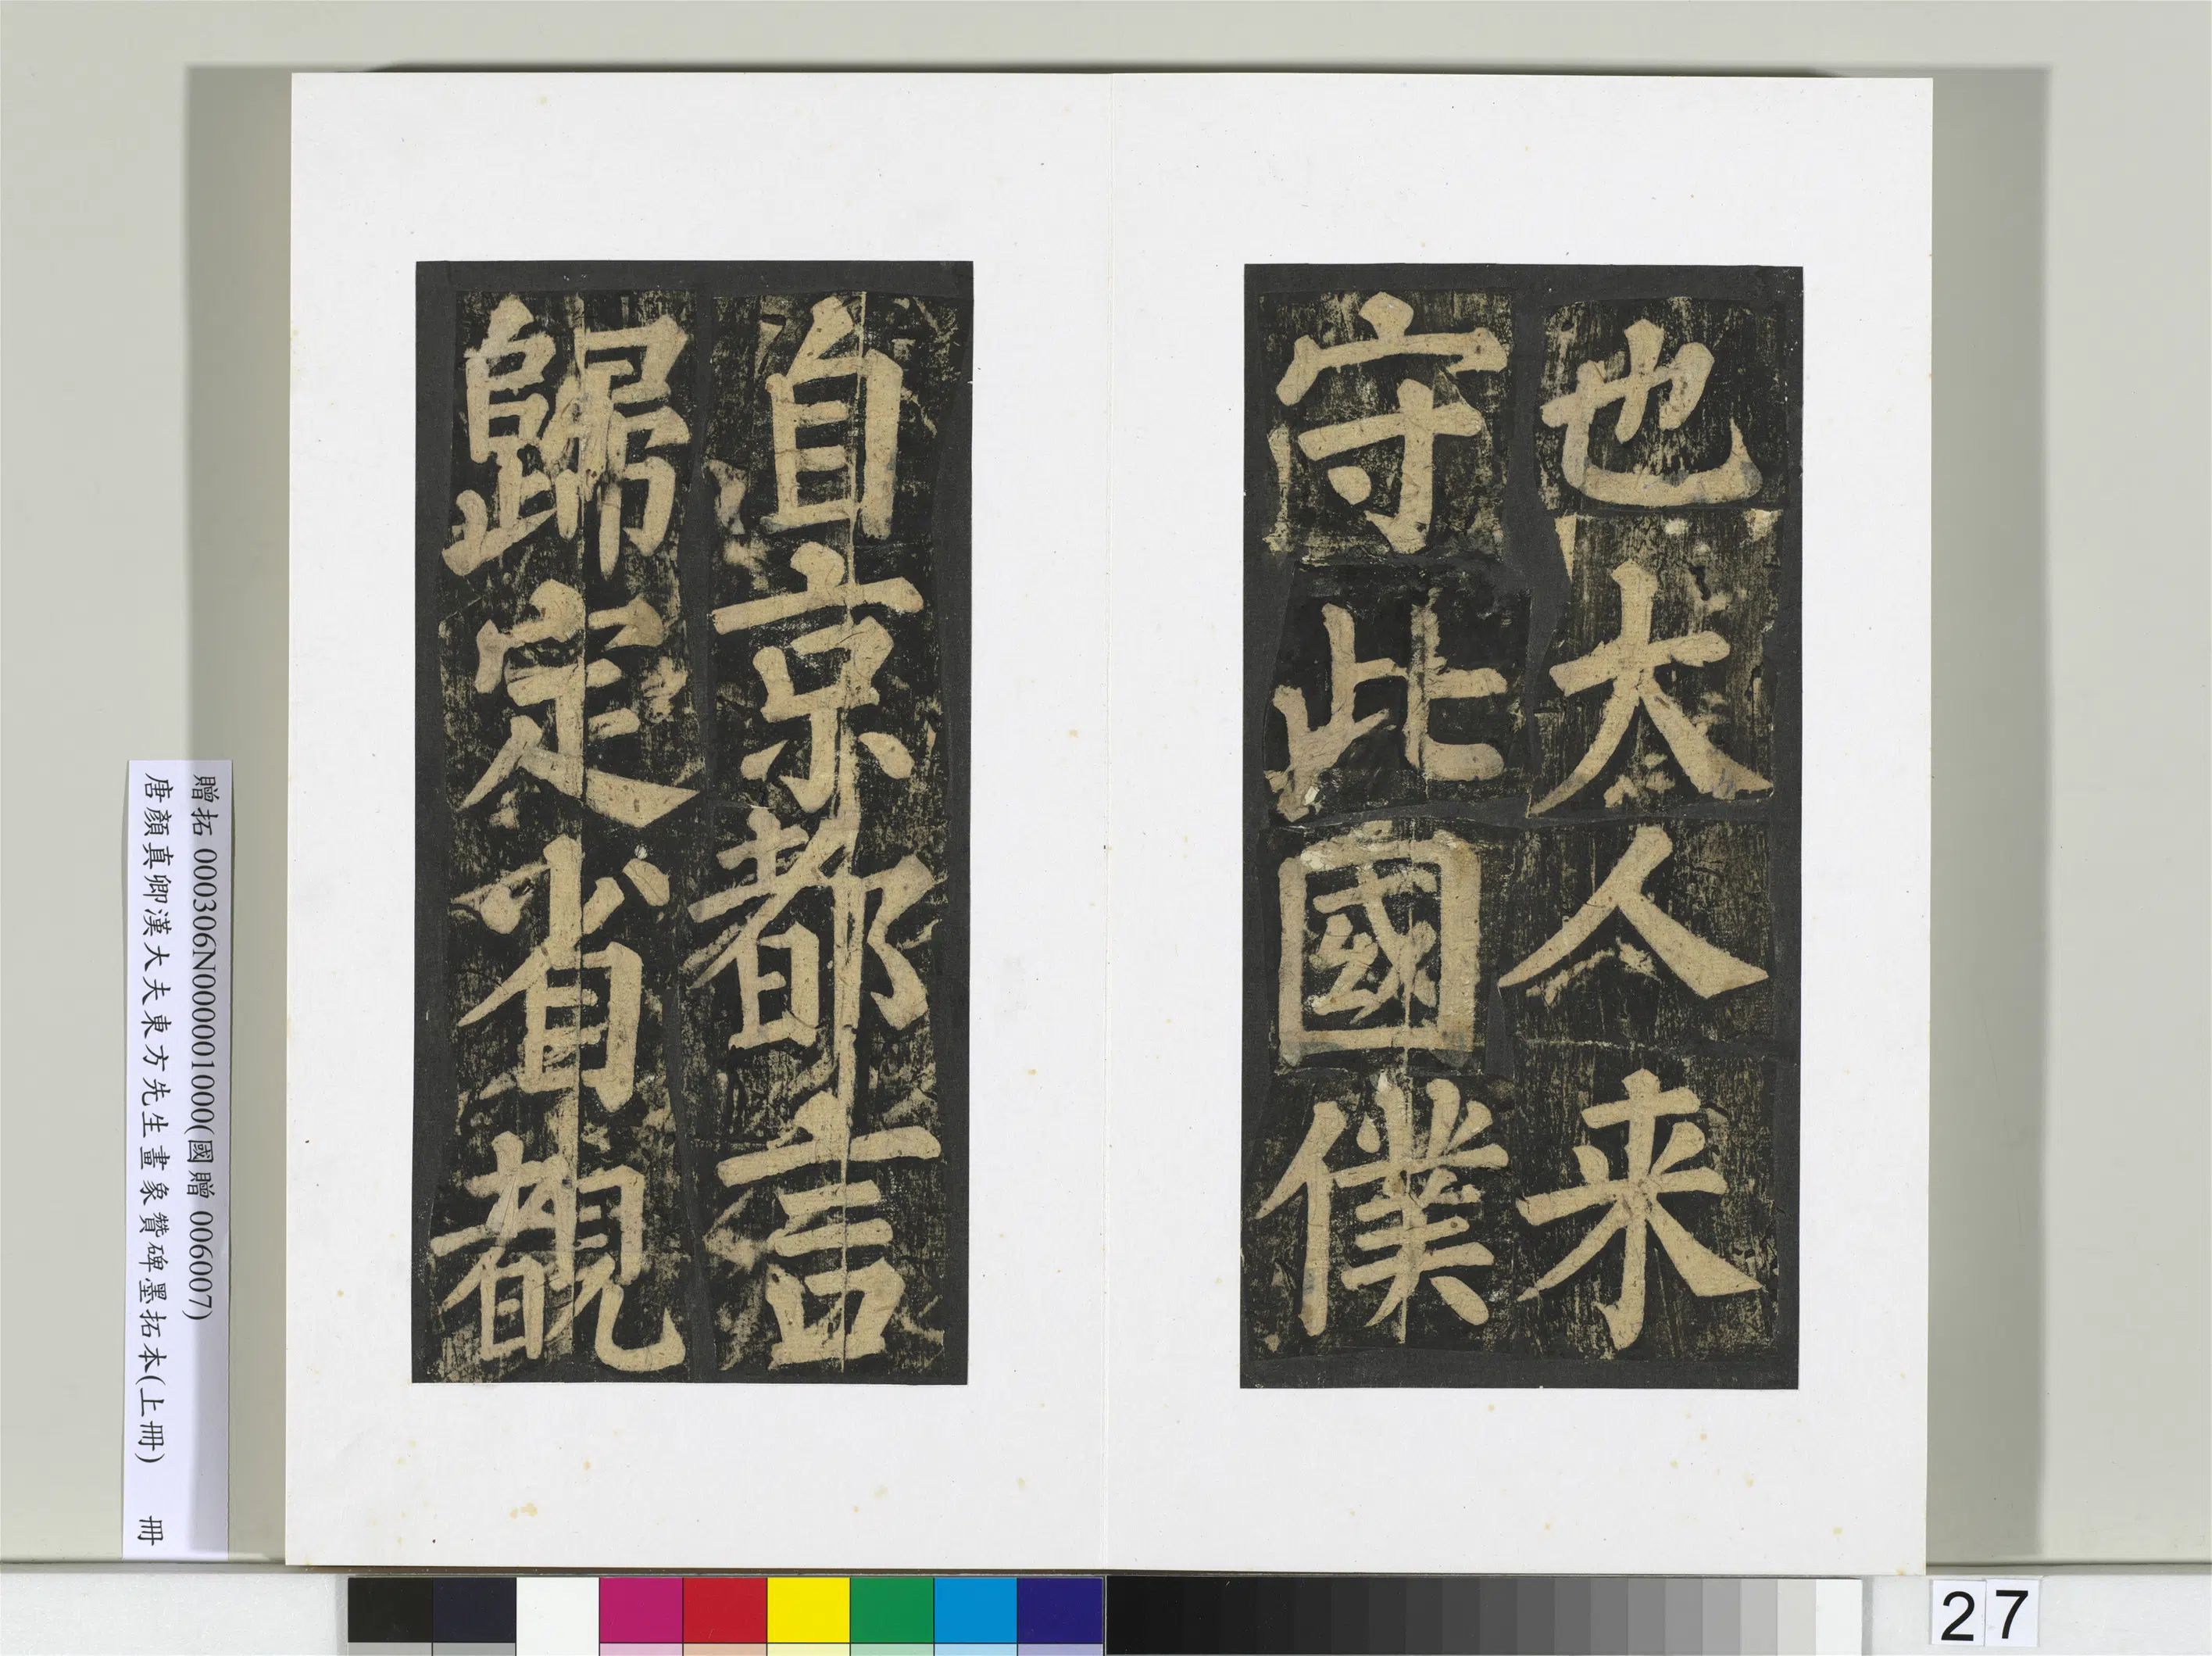 也大人来
守此國僕
自京都言
歸定省覩
贈拓 000306N000001000(國贈 006007)
唐顏真卿漢大夫東方先生畫象贊碑墨拓本(上冊) 冊
27